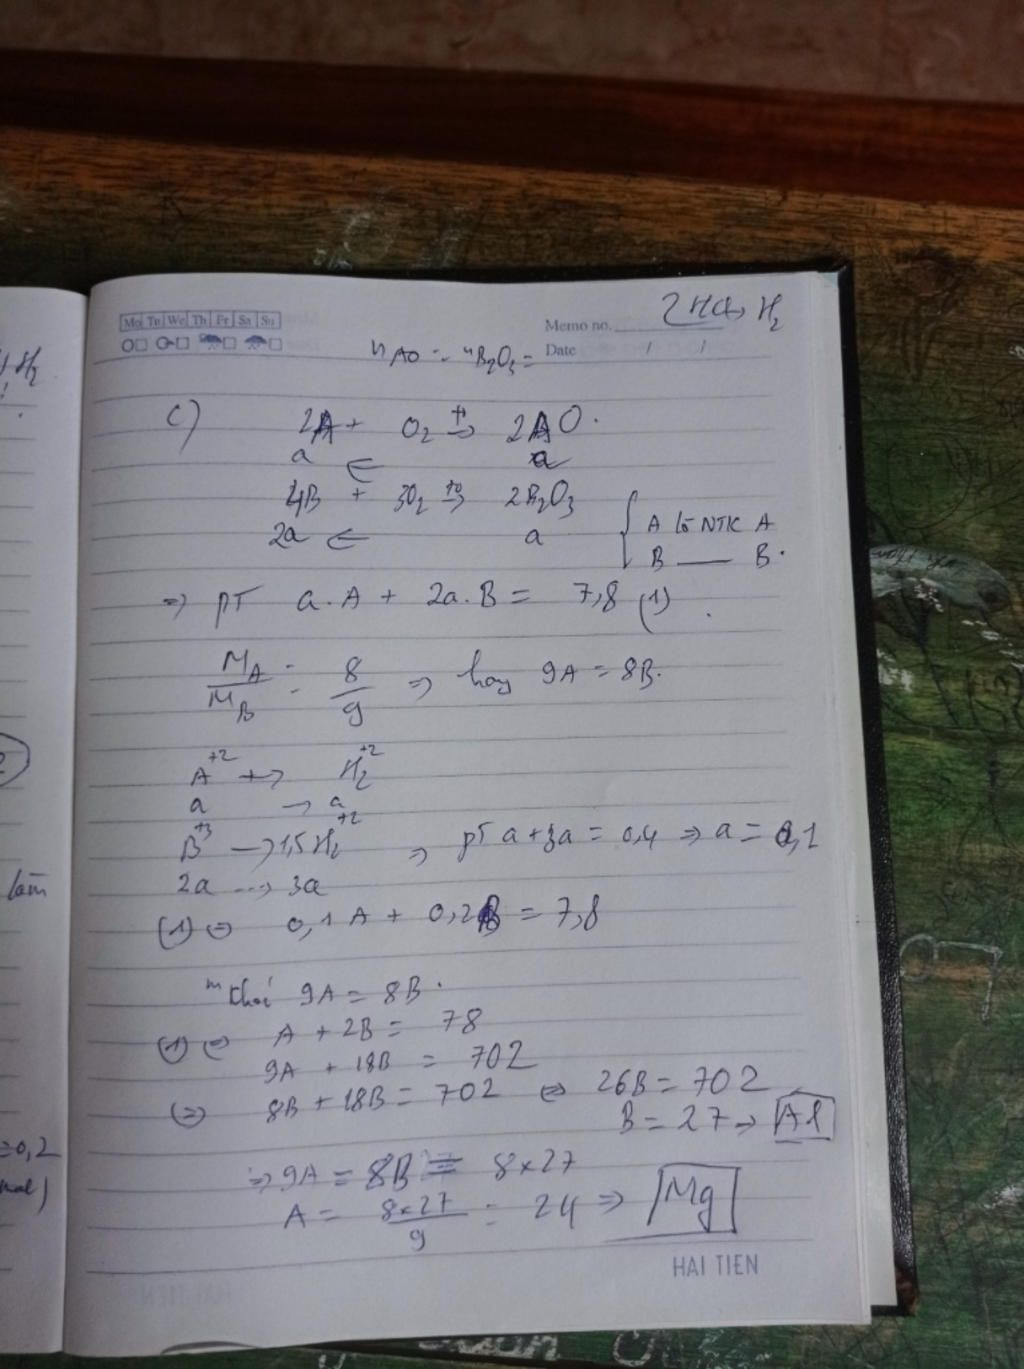 2HCl → H2
Mo Tu We Th Fr Sa Su
Memo no.
Date / /
nAO = nB2O3 =
c) 2A + O2 t°→ 2AO.
a ← a
4B + 3O2 t°→ 2B2O3
2a ← a
{ A là NTK A
B — B.
=> PT a.A + 2a.B = 7,8 (1)
MA/MB = 8/9 => hay 9A = 8B.
A+2 → H2+2
a → a
B+3 → 1,5H2+2
=> PT a + 3a = 0,4 => a = 0,1
2a → 3a
(1) <=> 0,1A + 0,2B = 7,8
9A = 8B.
(1) <=> A + 2B = 78
9A + 18B = 702
<=> 8B + 18B = 702 <=> 26B = 702
B = 27 → Al
=> 9A = 8B = 8x27
A = 8x27/9 = 24 => Mg
HAI TIEN
H2
làm
=0,2
mol)